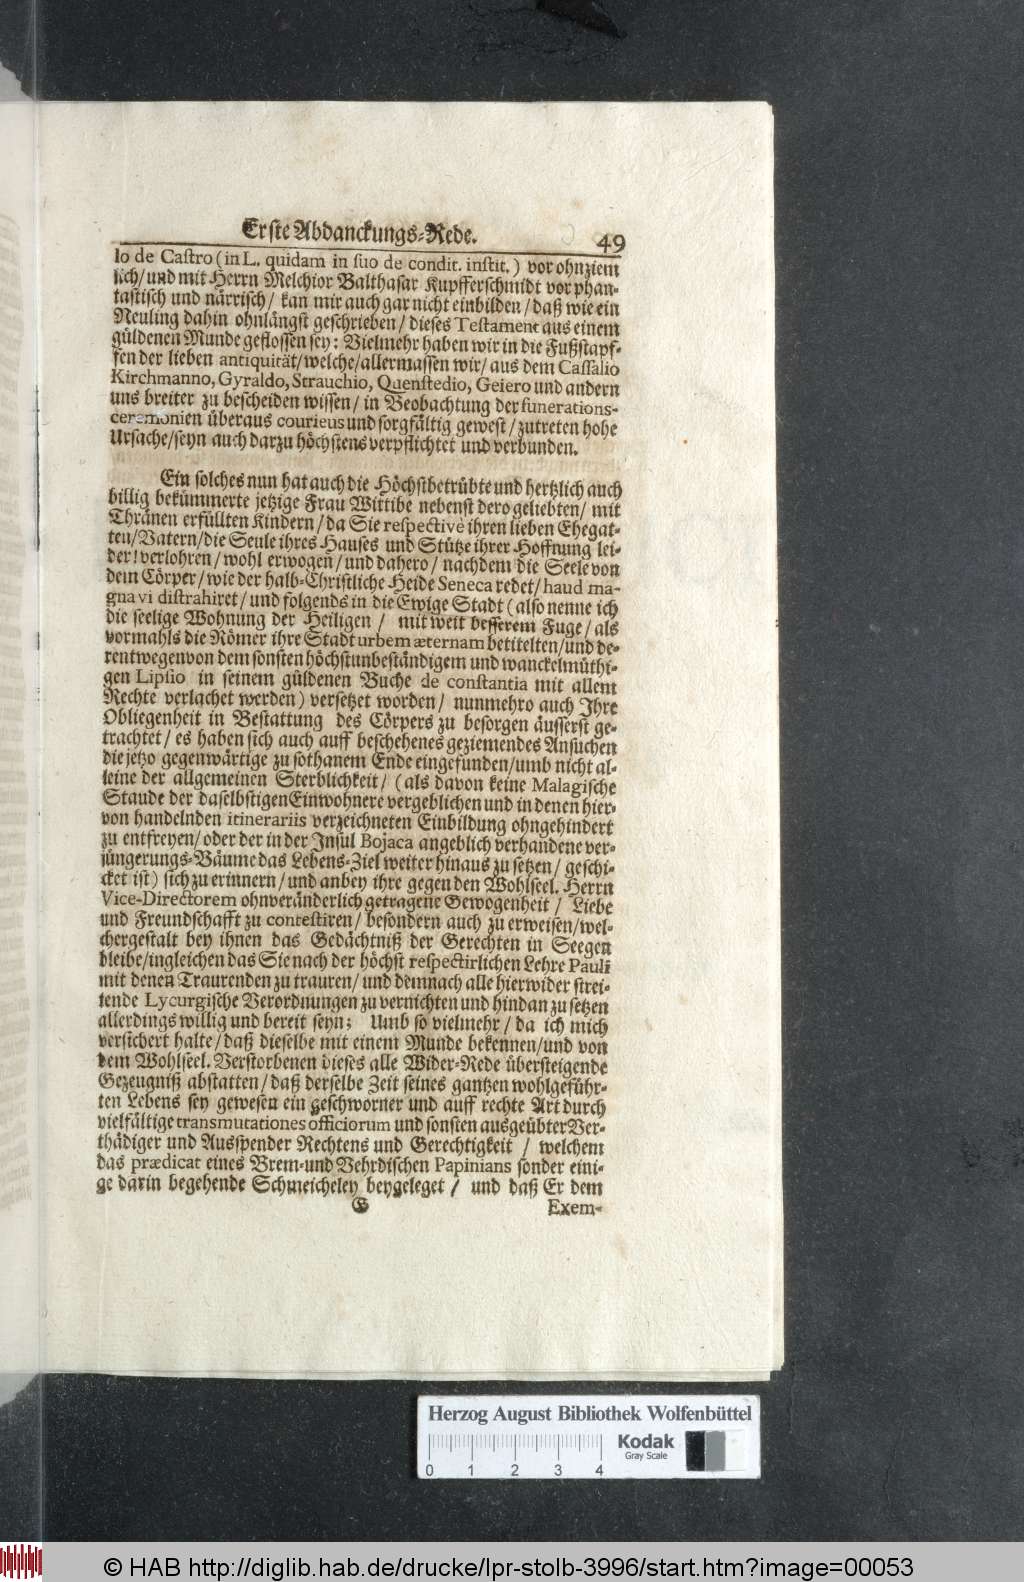 Erste Abdanckungs-Rede. 49
lo de Castro (in L. quidam in suo de condit. instit.) vor ohnziem
lich/ und mit Herrn Melchior Balthasar Kupfferschmidt vor phan-
tastisch und närrisch/ kan mir auch gar nicht einbilden/ daß wie ein
Neuling dahin ohnlängst geschrieben/ dieses Testament aus einem
güldenen Munde geflossen sey: Vielmehr haben wir in die Fußstapf-
fen der lieben antiquität/ welche/ allermassen wir/ aus dem Cassalio
Kirchmanno, Gyraldo, Strauchio, Quenstedio, Geiero und andern
uns breiter zu bescheiden wissen/ in Beobachtung der funerations-
ceremonien überaus courieus und sorgfältig gewest/ zutreten hohe
Ursache/ seyn auch darzu höchstens verpflichtet und verbunden.
Ein solches nun hat auch die Höchstbetrübte und hertzlich auch
billig bekümmerte jetzige Frau Wittibe nebenst dero geliebten/ mit
Thränen erfüllten Kindern/ da Sie respectivè ihren lieben Ehegat-
ten/ Vatern/ die Seule ihres Hauses und Stütze ihrer Hoffnung lei-
der! verlohren/ wohl erwogen/ und dahero/ nachdem die Seele von
dem Cörper/ wie der halb-Christliche Heide Seneca redet/ haud ma-
gna vi distrahiret/ und folgends in die Ewige Stadt (also nenne ich
die seelige Wohnung der Heiligen/ mit weit besserem Fuge/ als
vormahls die Römer ihre Stadt urbem æternam betitelten/ und de-
rentwegen von dem sonsten höchstunbeständigem und wanckelmüthi-
gen Lipsio in seinem güldenen Buche de constantia mit allem
Rechte verlachet werden) versetzet worden/ nunmehro auch Ihre
Obliegenheit in Bestattung des Cörpers zu besorgen äusserst ge-
trachtet/ es haben sich auch auff beschehenes geziemendes Ansuchen
die jetzo gegenwärtige zu sothanem Ende eingefunden/ umb nicht al-
leine der allgemeinen Sterblichkeit/ (als davon keine Malagische
Staude der daselbstigen Einwohnere vergeblichen und in denen hier-
von handelnden itinerariis verzeichneten Einbildung ohngehindert
zu entfreyen/ oder der in der Insul Bojaca angeblich verhandene ver-
jüngerungs-Bäume das Lebens-Ziel weiter hinaus zu setzen/ geschi-
cket ist) sich zu erinnern/ und anbey ihre gegen den Wohlseel. Herrn
Vice-Directorem ohnveränderlich getragene Gewogenheit/ Liebe
und Freundschafft zu contestiren/ besondern auch zu erweisen/ wel-
chergestalt bey ihnen das Gedächtniß der Gerechten in Seegen
bleibe/ ingleichen das Sie nach der höchst respectirlichen Lehre Pauli
mit denen Traurenden zu trauren/ und demnach alle hierwider strei-
tende Lycurgische Verordnungen zu vernichten und hindan zu setzen
allerdings willig und bereit seyn; Umb so vielmehr/ da ich mich
versichert halte/ daß dieselbe mit einem Munde bekennen/ und von
dem Wohlseel. Verstorbenen dieses alle Wider-Rede übersteigende
Gezeugniß abstatten/ daß derselbe Zeit seines gantzen wohlgeführ-
ten Lebens sey gewesen ein geschworner und auff rechte Art durch
vielfältige transmutationes officiorum und sonsten ausgeübter Ver-
thädiger und Ausspender Rechtens und Gerechtigkeit/ welchem
das prædicat eines Brem- und Vehrdischen Papinians sonder eini-
ge darin begehende Schmeicheley beygeleget/ und daß Er dem
G Exem-
Herzog August Bibliothek Wolfenbüttel
Kodak
Gray Scale
0 1 2 3 4
© HAB http://diglib.hab.de/drucke/lpr-stolb-3996/start.htm?image=00053